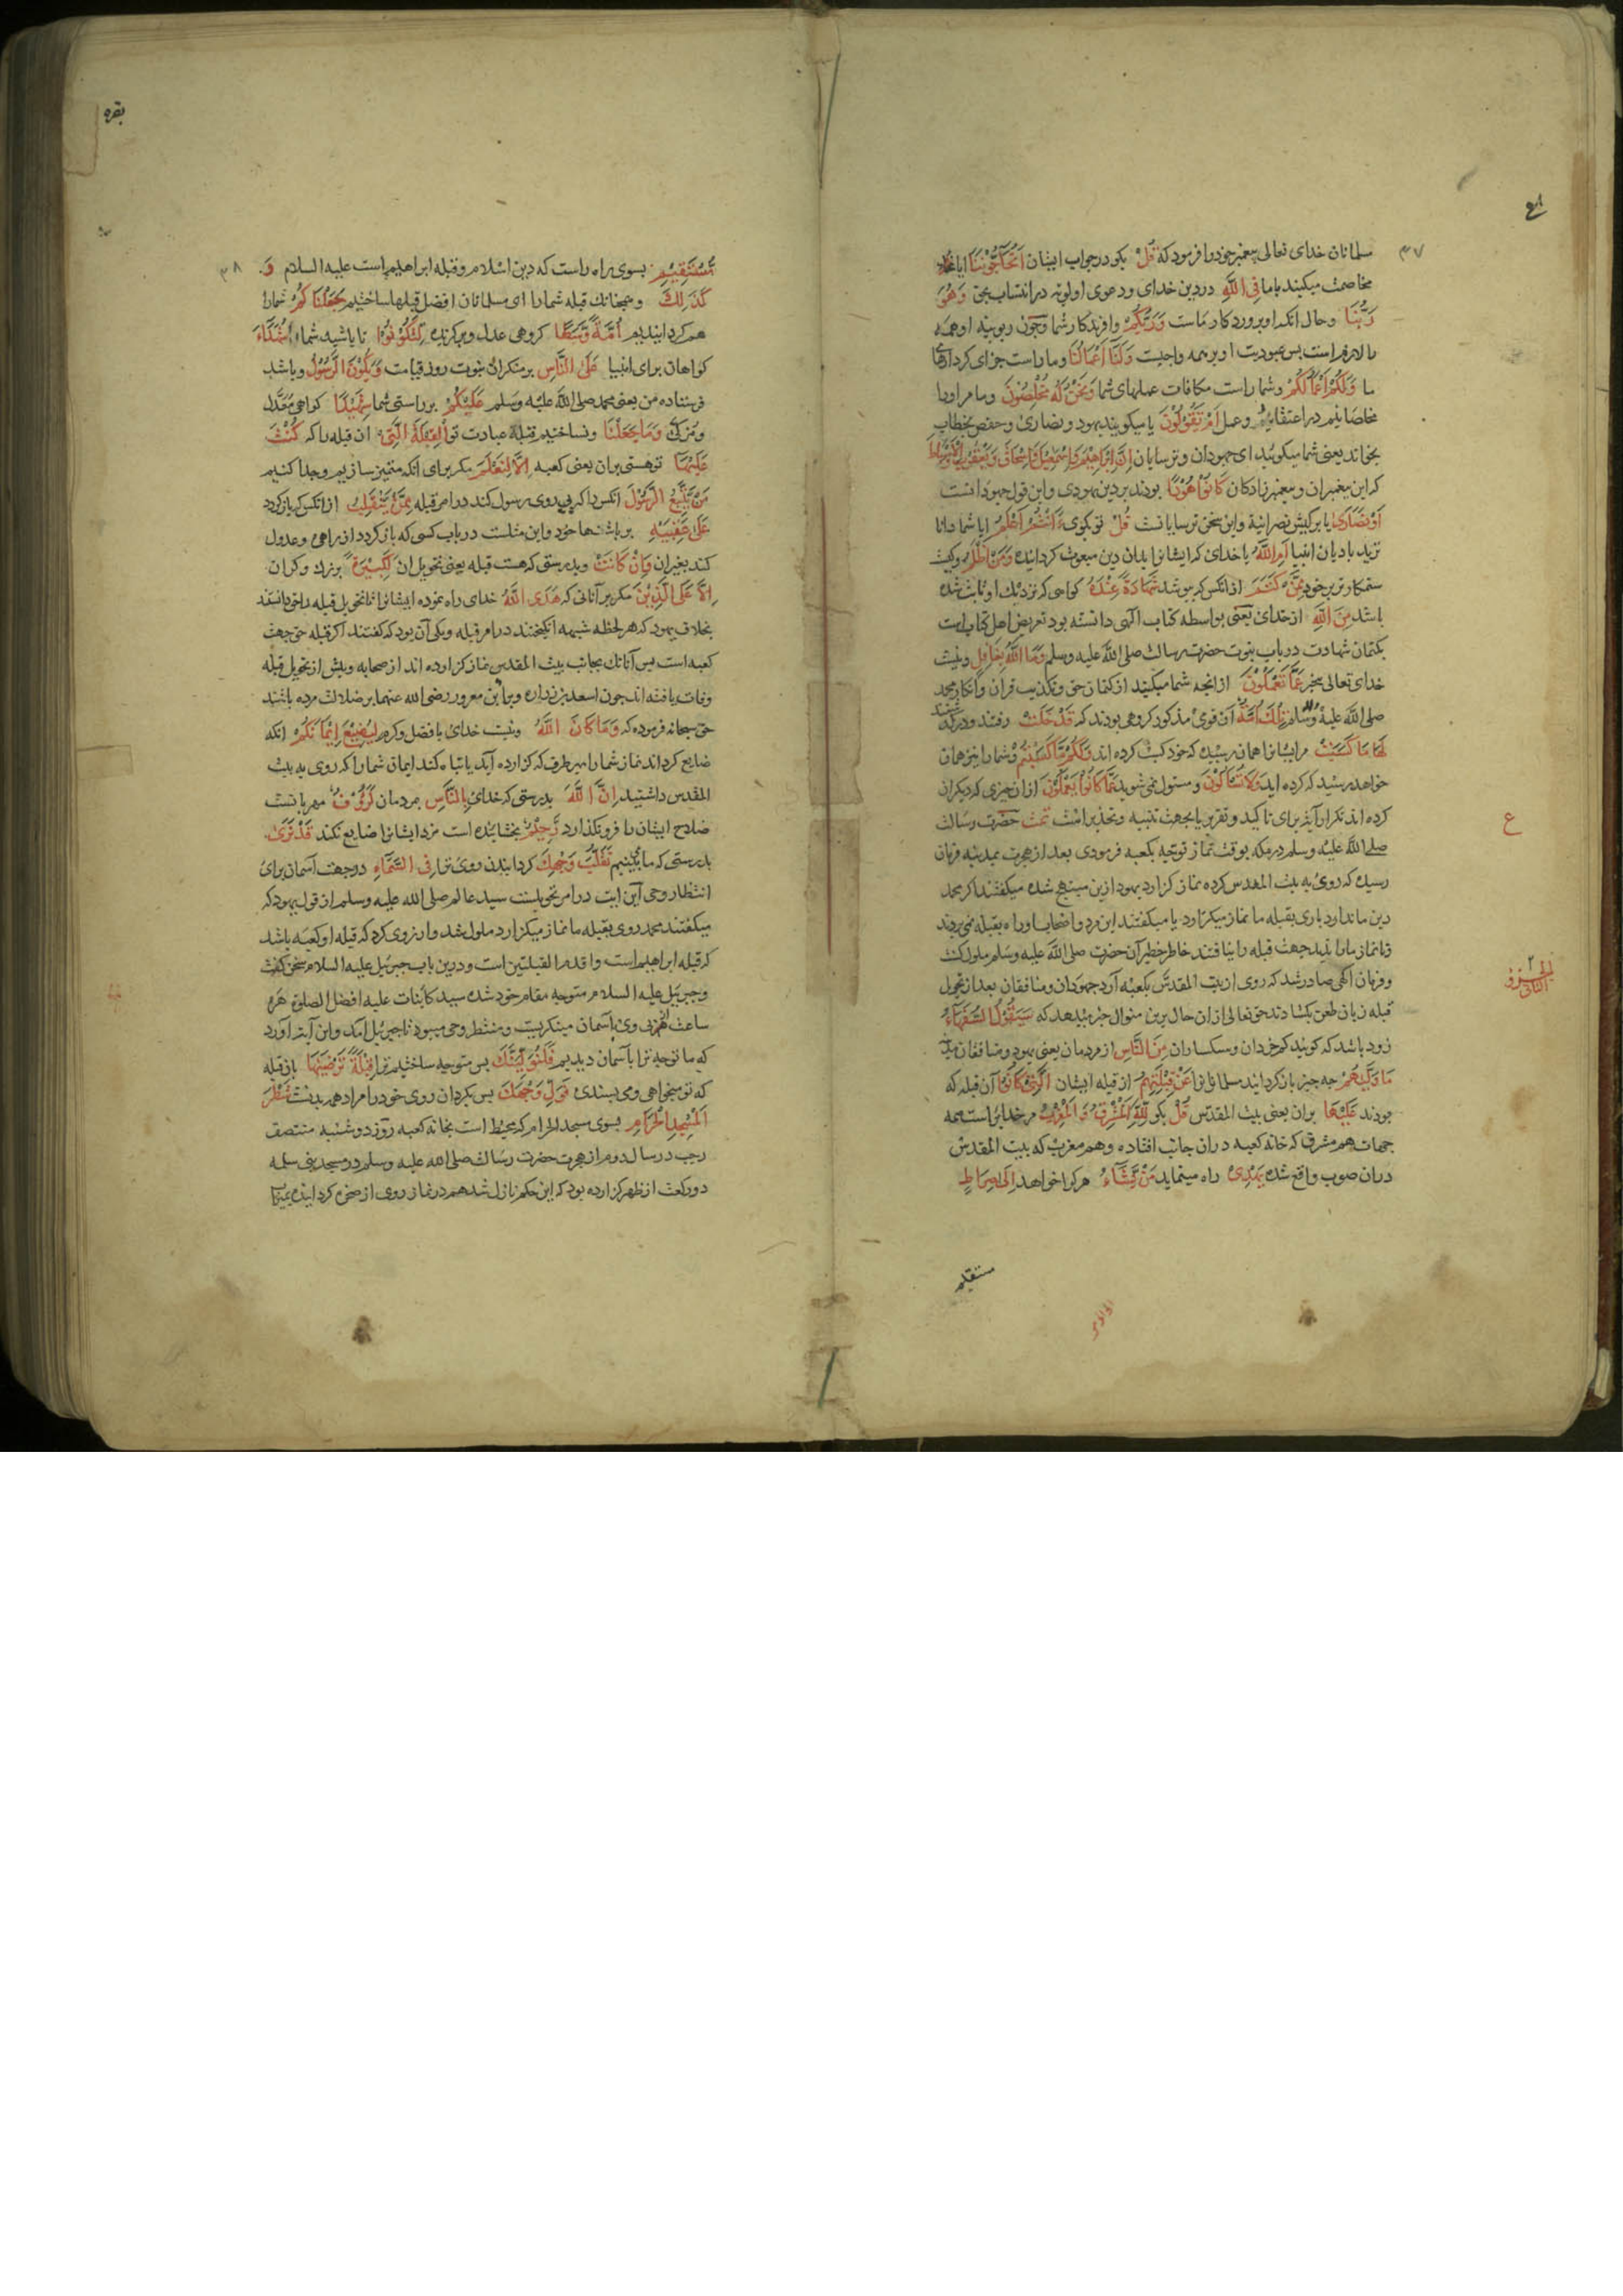 ع
۳۷
مسلمانان خدای تعالی پیغمبر خود را فرمود که قُلْ بگو در جواب ایشان اَتُحَآجُّوْنَنَا ایا
مخاصمت میکنید باما فِی اللّٰهِ در دین خدای و دعوی اولویة در انتساب بحق وَهُوَ
رَبُّنَا و حال آنکه او پروردکار ماست وَرَبُّكُمْ وافریدکار شما و چون ربوبیة او همه
را لازم است پس عبودیت او بر همه واجبست وَلَنَا اَعْمَالُنَا و ماراست جزای کردارهای
ما وَلَكُمْ اَعْمَالُكُمْ و شما راست مکافات عملهای شما وَنَحْنُ لَهٗ مُخْلِصُوْنَ و ما مر اورا
مخلصانیم در اعتقاد و عمل اَمْ تَقُوْلُوْنَ یا میکویند یهود و نصاری و حفص بخطاب
بخواند یعنی شما میکوئید ای جهودان و ترسایان اِنَّ اِبْرَاهِیْمَ وَاِسْمٰعِیْلَ وَاِسْحَاقَ وَیَعْقُوْبَ وَالْاَسْبَاطَ
که این پیغمبران و پیغمبر زادکان كَانُوْا هُوْدًا بودند بر دین یهودی و این قول جهودانست
اَوْ نَصَارٰی یا بر کیش نصرانیة و این سخن ترسایانست قُلْ تو بکوی ءَاَنْتُمْ اَعْلَمُ ایا شما دانا
ترید بادیان انبیا اَمِ اللّٰهُ یا خدای که ایشانرا بدان دین مبعوث کردانیده وَمَنْ اَظْلَمُ و کیست
ستمکارتر بر خود مِمَّنْ كَتَمَ از انکس که بپوشد شَهَادَةً عِنْدَهٗ کواهی که نزدیک او ثابت شده
باشد مِنَ اللّٰهِ از خدای یعنی بواسطه کتاب الهی دانسته بود تعریض اهل کتاب است
بکتمان شهادت در باب نبوت حضرت رسالت صلی اللّٰه علیه وسلم وَمَا اللّٰهُ بِغَافِلٍ و نیست
خدای تعالی بیخبر عَمَّا تَعْمَلُوْنَ از انچه شما میکنید از کتمان حق و تکذیب قران و انکار محمد
صلی اللّٰه علیه وسلم تِلْكَ اُمَّةٌ آن قوم مذکور کروهی بودند که قَدْ خَلَتْ رفتند و درکذشتند
لَهَا مَا كَسَبَتْ مر ایشانرا همان رسیده که خود کسب کرده اند وَلَكُمْ مَّا كَسَبْتُمْ و شما را نیز همان
خواهد رسید که کرده اید وَلَا تُسْئَلُوْنَ و مسئول نمی شوید عَمَّا كَانُوْا یَعْمَلُوْنَ از ان چیزی که دیکران
کرده اند تکرار آیة برای تاکید و تقریر یا بجهت تنبیه و تحذیر است تمت حضرت رسالت
ع
صلی اللّٰه علیه وسلم در مکه بوقت نماز توجه بکعبه فرمودی بعد از هجرت بمدینه فرمان
رسید که روی به بیت المقدس کرده نماز کزارد یهود ازین مبتهج شده میکفتند اکر محمد
دین ما ندارد باری بقبله ما نماز میکزارد یا میکفتند این مرد و اصحاب او راه بقبله نمی بردند
تا نماز ما را ندید جهت قبله را نیافتند خاطر خطیر آن حضرت صلی اللّٰه علیه وسلم ملول کشت
و فرمان الهی صادر شد که روی از بیت المقدس بکعبه آرد جهودان و منافقان بعد از تحویل
الجزو
الثانی
۲
قبله زبان طعن بکشادند حق تعالی از ان حال برین منوال خبر میدهد که سَیَقُوْلُ السُّفَهَآءُ
زود باشد که کویند کم خردان و سبکساران مِنَ النَّاسِ از مردمان یعنی یهود و منافقان مدینه
مَا وَلّٰیهُمْ چه چیز باز کردانید مسلمانانرا عَنْ قِبْلَتِهِمُ از قبله ایشان الَّتِیْ كَانُوْا آن قبله که
بودند عَلَیْهَا بران یعنی بیت المقدس قُلْ بکو لِّلّٰهِ الْمَشْرِقُ وَالْمَغْرِبُ مر خدایراست همه
جهات هم مشرق که خانه کعبه در ان جانب افتاده و هم مغرب که بیت المقدس
دران صوب واقع شده یَهْدِیْ راه مینماید مَنْ یَّشَآءُ هر کرا خواهد اِلٰی صِرَاطٍ
مستقیم
بقره
۳۸
مُّسْتَقِیْمٍ بسوی راه راست که دین اسلام و قبله ابراهیم است علیه السلام وَ
كَذٰلِكَ و همچنانک قبله شمارا ای مسلمانان افضل قبلها ساختیم جَعَلْنَاكُمْ شمارا
هم کردانیدیم اُمَّةً وَّسَطًا کروهی عدل و برکزیده لِتَكُوْنُوْا تا باشید شما شُهَدَآءَ
کواهان برای انبیا عَلَی النَّاسِ بر منکران نبوت روز قیامت وَیَكُوْنَ الرَّسُوْلُ و باشد
فرستاده من یعنی محمد صلی اللّٰه علیه وسلم عَلَیْكُمْ بر راستی شما شَهِیْدًا کواهی معدل
و مزکی وَمَا جَعَلْنَا و نساختیم قبلة عبادت تو الْقِبْلَةَ الَّتِیْ ان قبله را که كُنْتَ
عَلَیْهَا تو هستی بران یعنی کعبه اِلَّا لِنَعْلَمَ مکر برای انکه متمیز سازیم و جدا کنیم
مَنْ یَّتَّبِعُ الرَّسُوْلَ انکس را که پیروی رسول کند در امر قبله مِمَّنْ یَنْقَلِبُ از انکس که باز کردد
عَلٰی عَقِبَیْهِ بر پاشنها خود و این مثلست در باب کسی که باز کردد از راهی و عدول
کند بغیر ان وَاِنْ كَانَتْ و بدرستی که هست قبله یعنی تحویل ان لَكَبِیْرَةً بزرک و کران
اِلَّا عَلَی الَّذِیْنَ مکر بر آنانی که هَدَی اللّٰهُ خدای راه نموده ایشانرا تا تحویل قبله را حق دانستند
بخلاف یهود که هر لحظه شبهه انکیختند در امر قبله و یکی آن بود که کفتند اکر قبله حق جهت
کعبه است پس آنانک بجانب بیت المقدس نماز کزارده اند از صحابه و پیش از تحویل قبله
وفات یافته اند چون اسعد بن زراره و برا بن معرور رضی اللّٰه عنهما بر ضلالت مرده باشند
حق سبحانه فرموده که وَمَا كَانَ اللّٰهُ و نیست خدای بافضل و کرم لِیُضِیْعَ اِیْمَانَكُمْ انکه
ضایع کرداند نماز شمارا بهر طرف که کزارده آید یا تباه کند ایمان شمارا که روی به بیت
المقدس داشتید اِنَّ اللّٰهَ بدرستی که خدای بِالنَّاسِ بمردمان لَرَءُوْفٌ مهربانست
صلاح ایشان را فرو نکذارد رَّحِیْمٌ بخشاینده است مزد ایشانرا ضایع نکند قَدْ نَرٰی
بدرستی که ما می بینیم تَقَلُّبَ وَجْهِكَ کردانیدن روی ترا فِی السَّمَآءِ در جهت آسمان برای
انتظار وحی آین ایت در امر تحویلست سید عالم صلی اللّٰه علیه وسلم از قول یهود که
میکفتند محمد روی بقبله ما نماز میکزارد ملول شد و ارزوی کرد که قبله او کعبه باشد
که قبله ابراهیم است و اقدم القبلتین است و درین باب جبرئیل علیه السلام سخن کفت
و جبرئیل علیه السلام متوجه مقام خود شده سید کاینات علیه افضل الصلوة هر
ساعت در پی وی بآسمان مینکریست و منتظر وحی میبود تا جبرئیل آمد و این آیة آورد
که ما توجه ترا بآسمان دیدیم فَلَنُوَلِّیَنَّكَ پس متوجه ساختیم ترا قِبْلَةً تَرْضٰیهَا بان قبله
که تو میخواهی و می پسندی فَوَلِّ وَجْهَكَ پس بکردان روی خود را مراد همه بدنست شَطْرَ
الْمَسْجِدِ الْحَرَامِ بسوی مسجد الحرام که محیط است بخانه کعبه روز دوشنبه منتصف
رجب در سال دوم از هجرت حضرت رسالت صلی اللّٰه علیه وسلم در مسجد بنی سلمه
دو رکعت از ظهر کزارده بود که این حکم نازل شد هم در نماز روی از صخره کردانیده